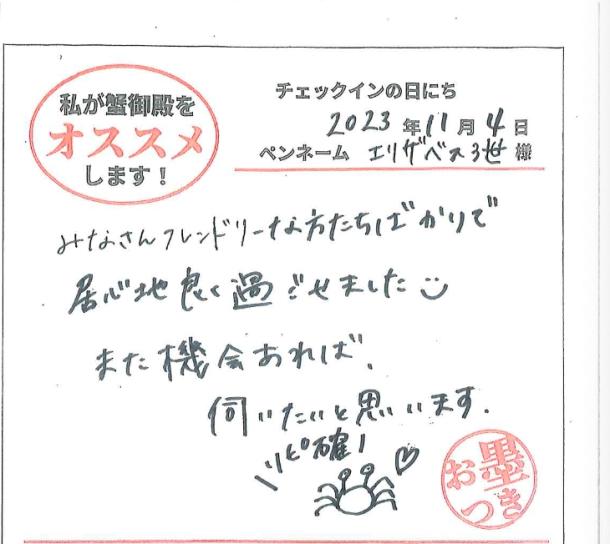 私が蟹御殿を
オススメ
します！
チェックインの日にち
2023年11月4日
ペンネーム エリザベス3世 様
みなさんフレンドリーな方たちばかりで
居心地良く過ごせました
また機会あれば、
伺いたいと思います.
リピ確!
お墨
つき